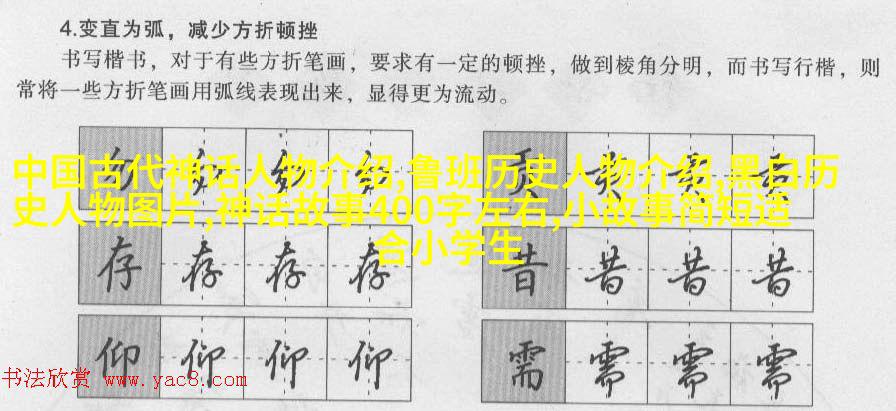 4.变直为弧，减少方折顿挫
书写楷书，对于有些方折笔画，要求有一定的顿挫，做到棱角分明，而书写行楷，则
常将一些方折笔画用弧线表现出来，显得更为流动。
中国古代神话人物介绍,鲁班历史人物介绍,黑白历
史人物图片,神话故事400字左右,小故事简短适
合小学生
存 存 存 存
昔 昔 昔 昔
仰 仰 仰 仰
需 需 需 需
书法欣赏 www.yac8.com